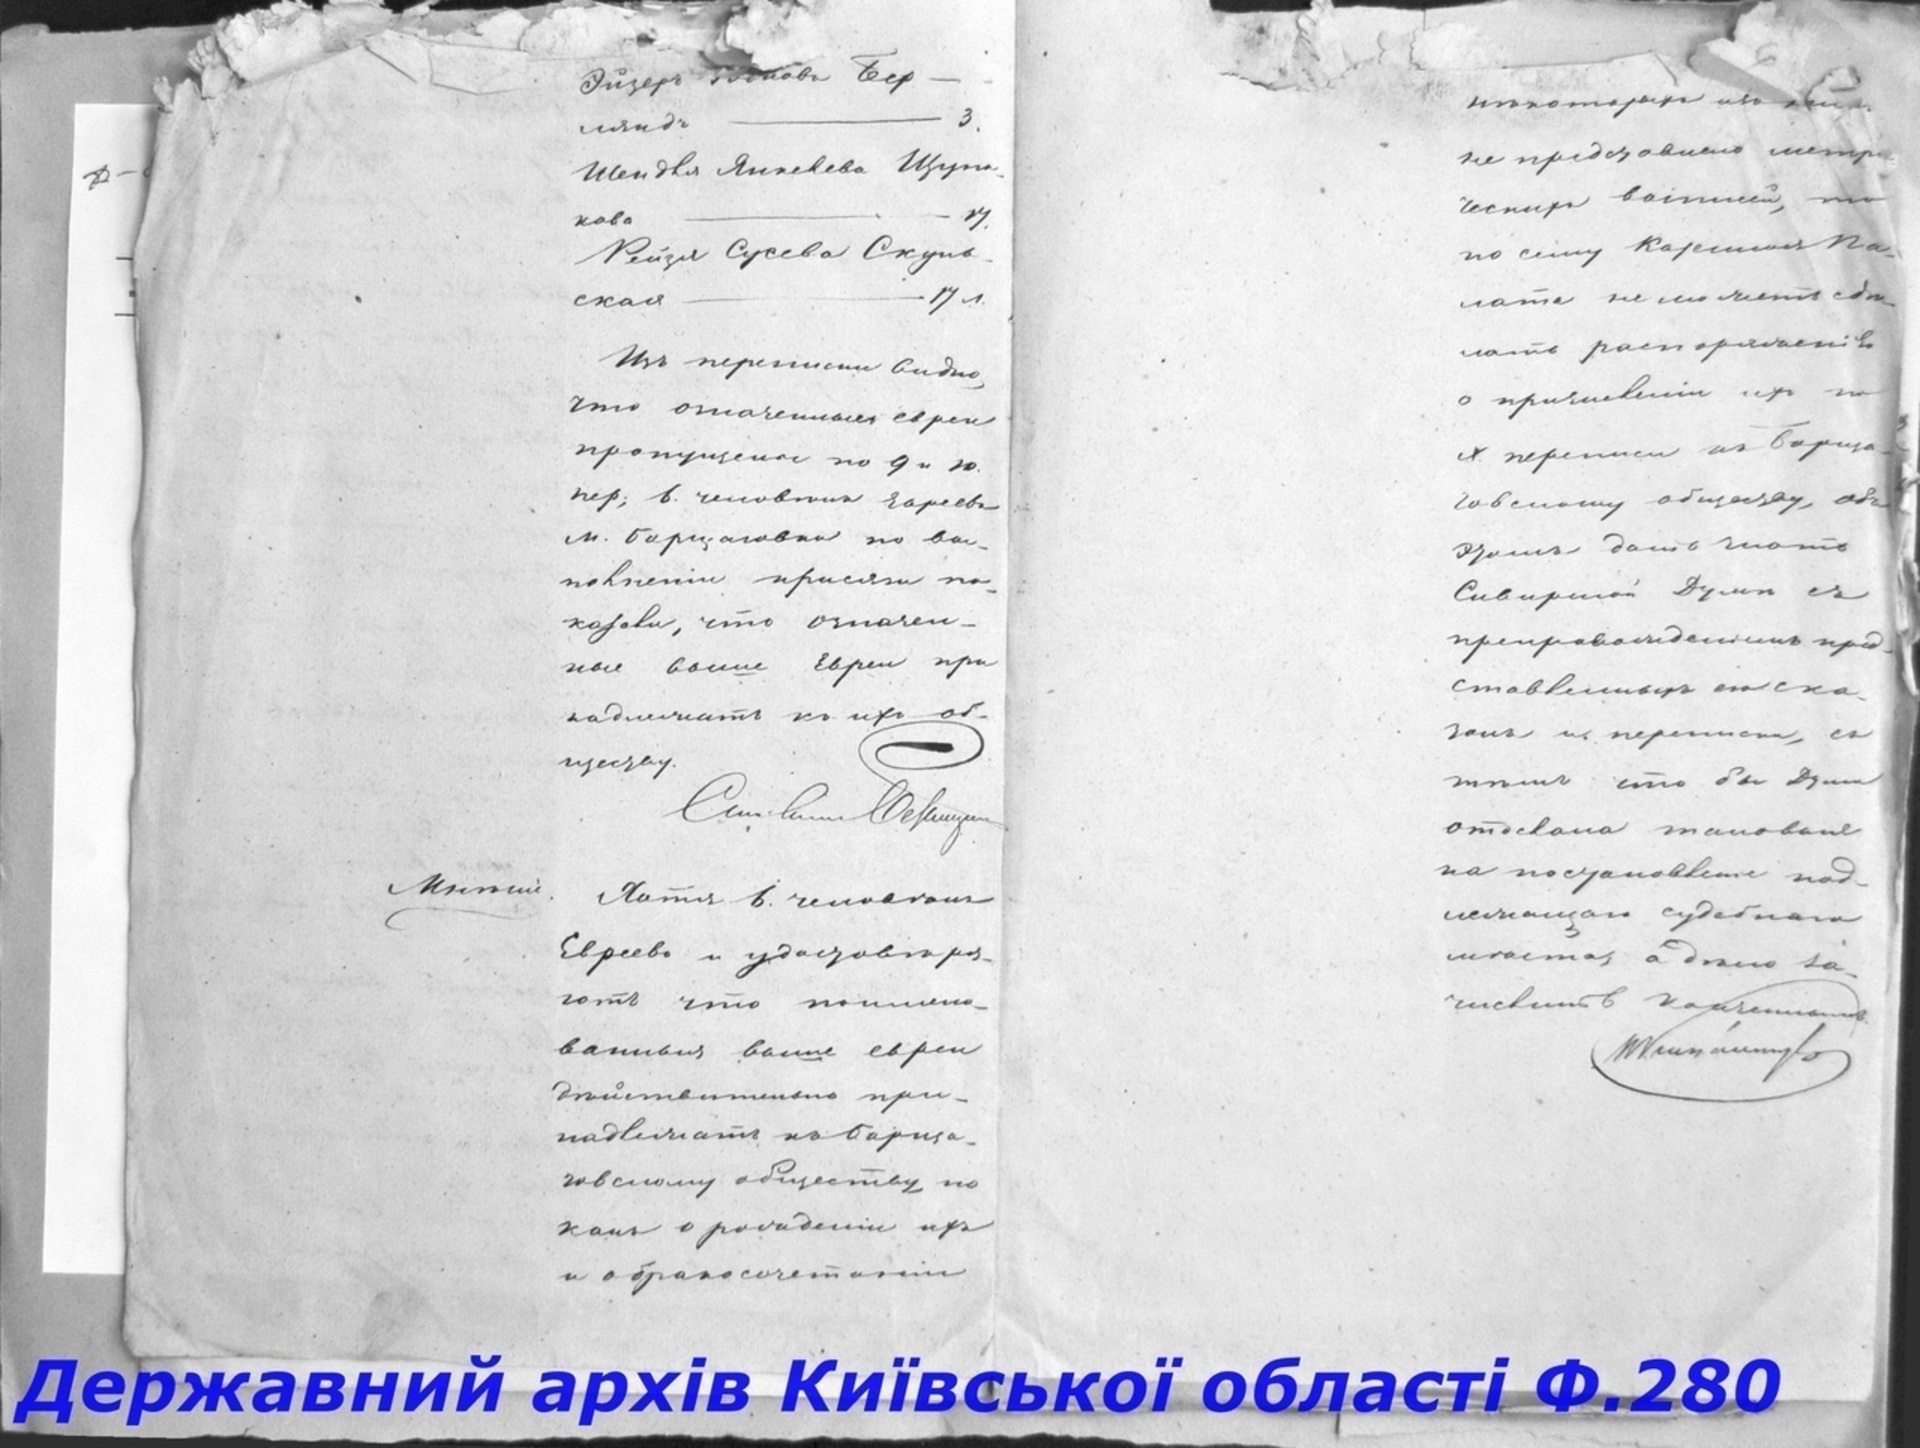 Эйзеръ Бер-
ляндъ — 3.
Шендля Янкелева Щупа-
кова — 17.
Рейзя Сусева Скуль-
ская — 17 л.
Изъ переписки видно,
что означенныя евреи
пропущены по 9 и 10.
пер; 6. человѣкъ Евреевъ
м. Борщаговки по вы-
полненіи присяги по-
казали, что означен-
ные выше Евреи при
надлежатъ къ ихъ об-
ществу.
Мнѣніе.
Хотя 6. человѣкъ
Евреевъ и удостовѣря-
ютъ что поимено-
ванныя выше евреи
дѣйствительно при-
надлежатъ къ Борща-
говскому обществу но
какъ о рожденіи ихъ
и о бракосочетаніи
нѣкоторыхъ изъ
не представлено метри-
ческихъ выписей, то
по сему Казенная Па-
лата не можетъ сдѣ-
лать распоряженіе
о причисленіи ихъ по
X. переписи къ Борща-
говскому обществу, объ
этомъ дать знать
Сквирской Думѣ съ
препровожденіемъ пред-
ставленныхъ ею ска-
зокъ и переписки, съ
тѣмъ что бы Дума
отослала таковыя
на постановленіе над-
лежащаго судебнаго
мѣста, а дѣло за-
числить конченнымъ
Державний архів Київської області Ф.280